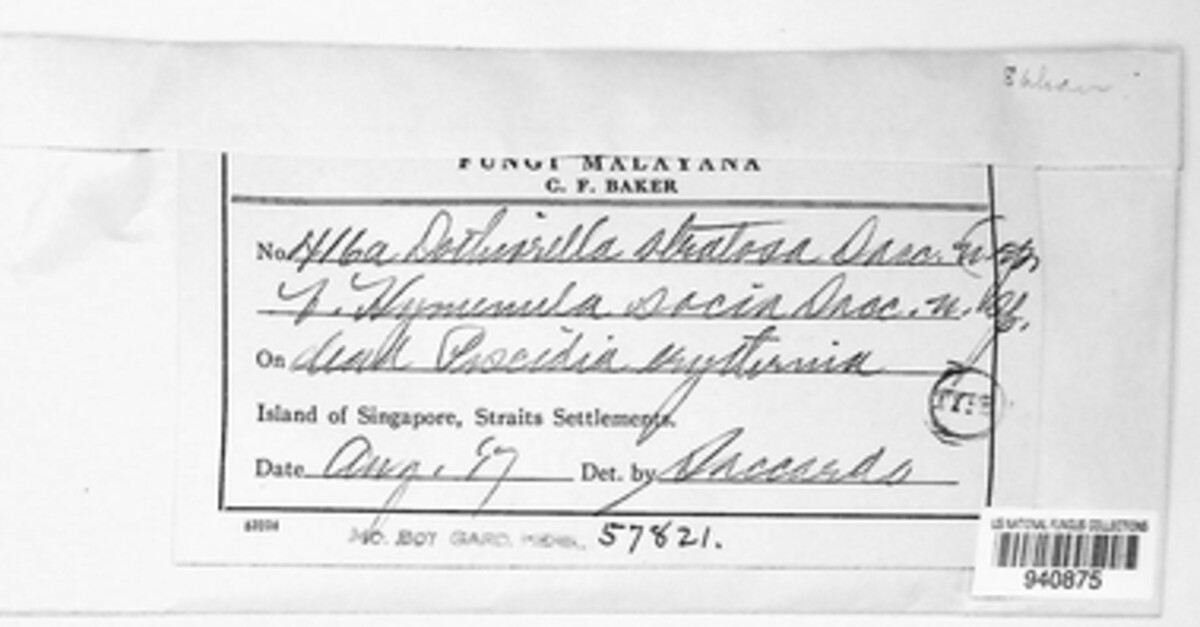 FUNGI MALAYANA
C. F. BAKER
No. 416a Dothiorella stratosa Sacc. n. sp.
& Hymenula socia Sacc. n. sp.
On dead Piscidia erythrina
TYPE
Island of Singapore, Straits Settlements.
Date Aug. 17 Det. by Saccardo
MO. BOT GARD. HERB. 57821.
US NATIONAL FUNGUS COLLECTIONS
940875